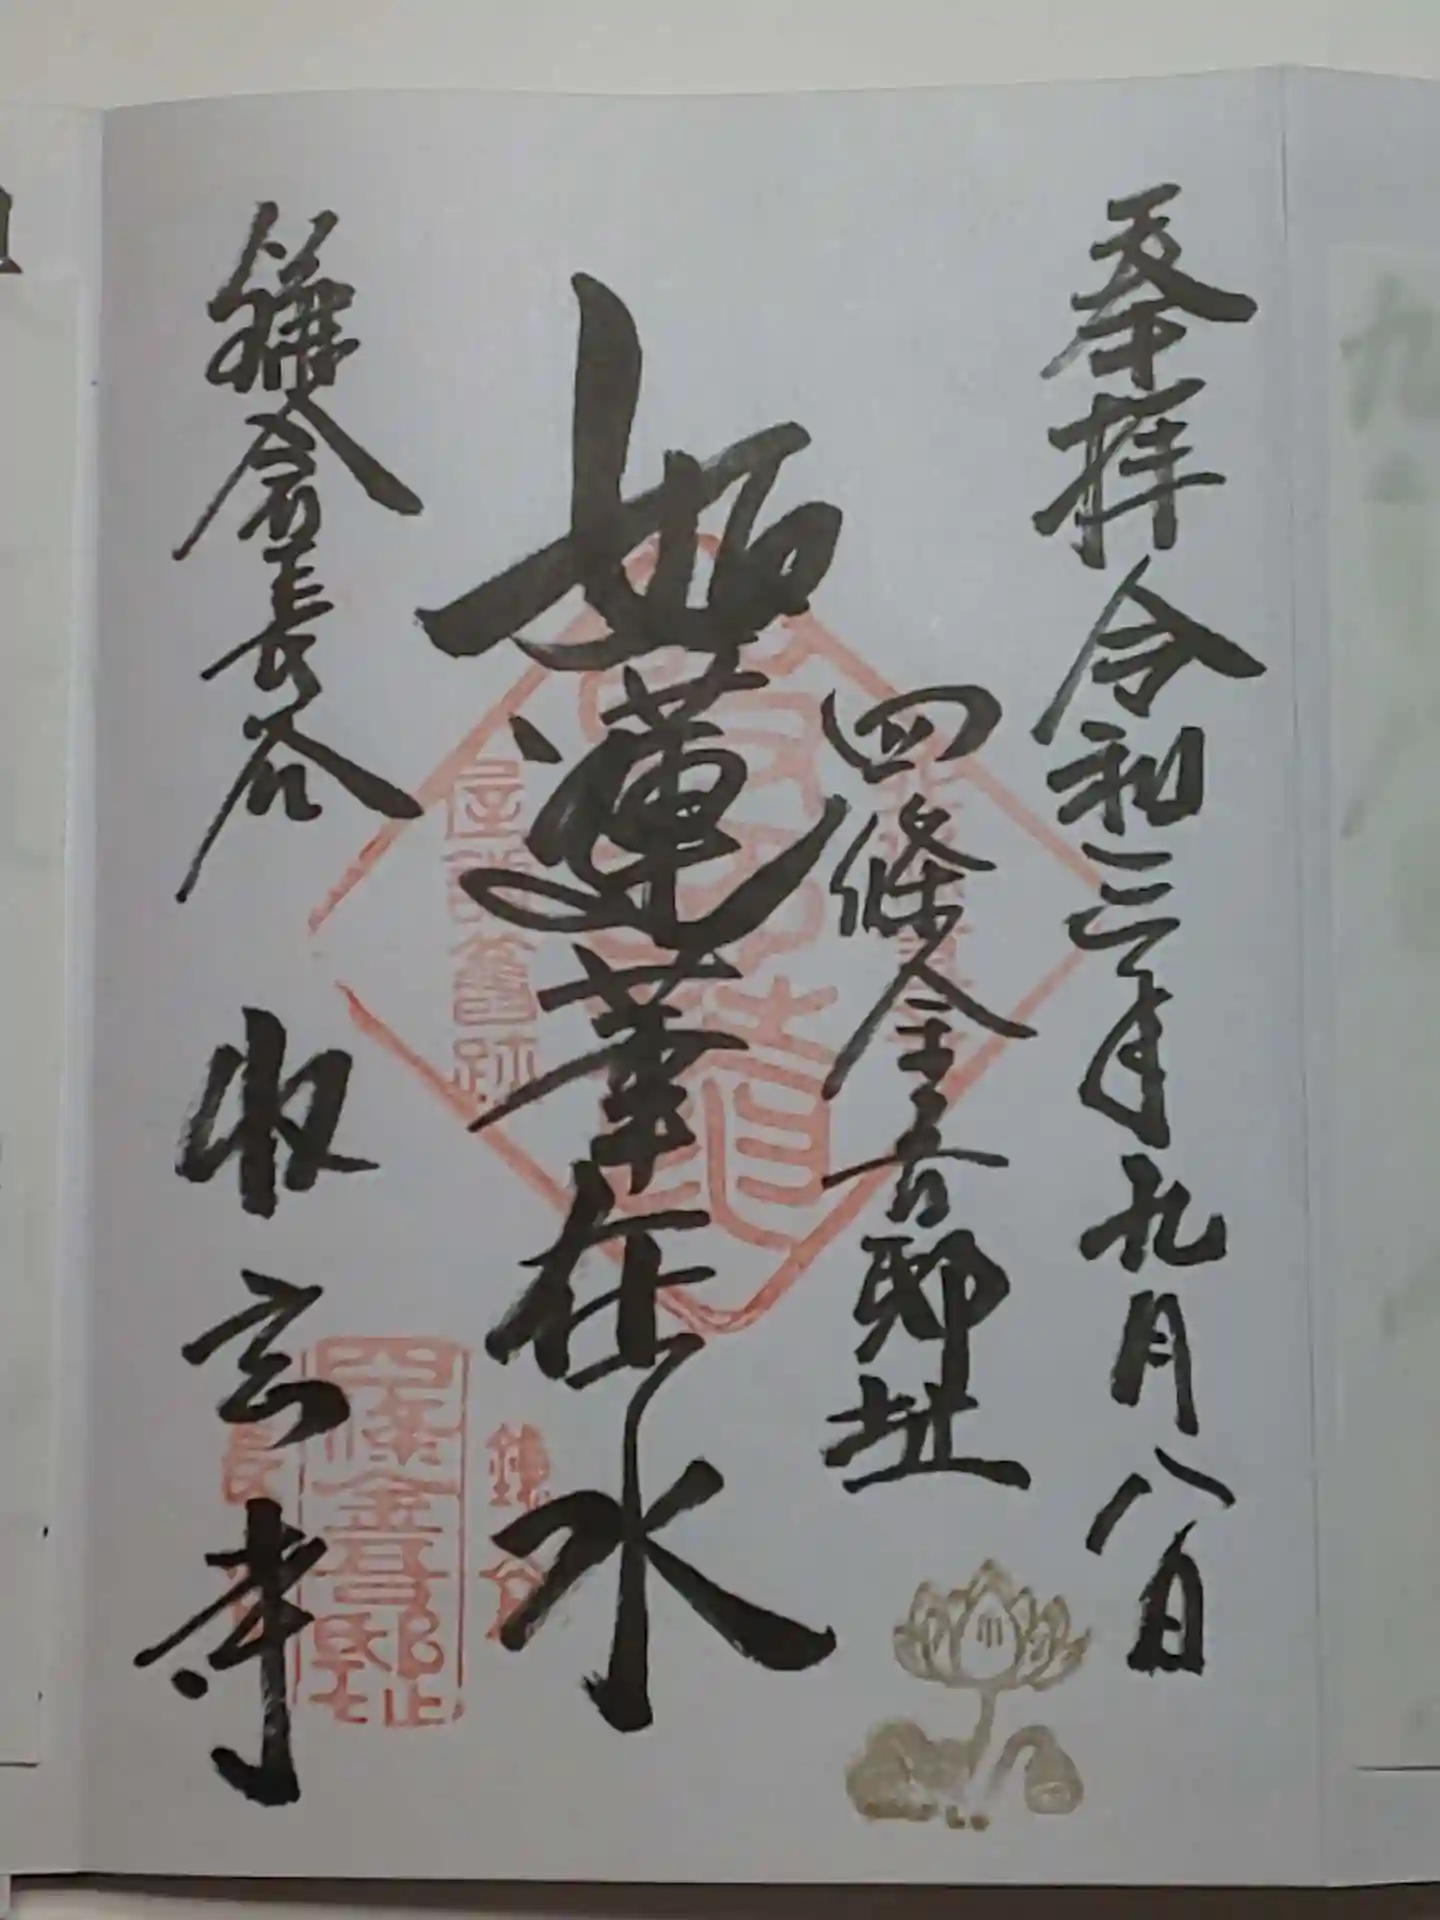 奉拝 令和三年九月八日
四條金吾邸址
如蓮華在水
鎌倉長谷 收玄寺
四條金吾邸址
鎌倉
長谷